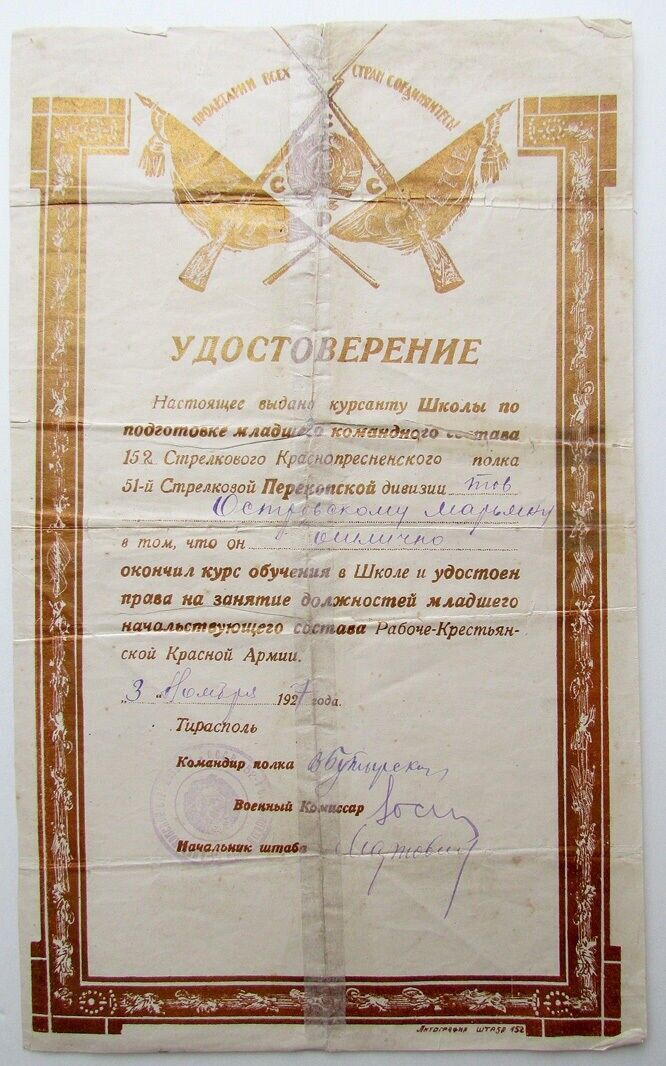 ПРОЛЕТАРИИ ВСЕХ СТРАН СОЕДИНЯЙТЕСЬ!
С С С Р
УДОСТОВЕРЕНИЕ
Настоящее выдано курсанту Школы по
подготовке младшего командного состава
152 Стрелкового Краснопресненского полка
51-й Стрелковой Перекопской дивизии тов
Островскому Марьяну
в том, что он отлично
окончил курс обучения в Школе и удостоен
права на занятие должностей младшего
начальствующего состава Рабоче-Крестьян-
ской Красной Армии.
„3" Ноября 1927 года.
Тирасполь
Командир полка
Военный Комиссар
Начальник штаба
Литография ШТАБА 152